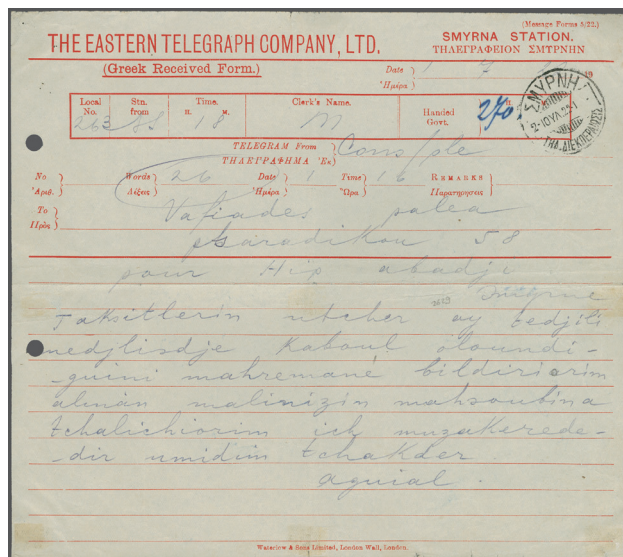 (Message Forms 5/22.)
THE EASTERN TELEGRAPH COMPANY, LTD. SMYRNA STATION.
ΤΗΛΕΓΡΑΦΕΙΟΝ ΣΜΥΡΝΗΝ
(Greek Received Form.) Date 1 7 19
Ἡμέρα
Local No. Stn. from Time. H. M. Clerk's Name. Handed Govt.
263 18 M 270
ΣΜΥΡΝΗ
ΤΗΛ.ΔΙΕΚΠΕΡΑΙΩΣΙΣ
TELEGRAM From Cons/ple
ΤΗΛΕΓΡΑΦΗΜΑ Ἐκ
No. Words 26 Date 1 Time 16 REMARKS
Ἀριθ. Λέξεις Ἡμέρα Ὥρα Παρατηρήσεις
To Vafiades palea
Πρὸς psaradikou 58
pour Hip abadji
Smyrne
Taksitlerin utcher ay tedjili
medjlisdje Kaboul oloundi-
guini mahremané bildiriorim
alman malinizin mahsoubina
tchalichiorim ich muzakerede-
-dir umidim tchakder
aguial.
Waterlow & Sons Limited, London Wall, London.